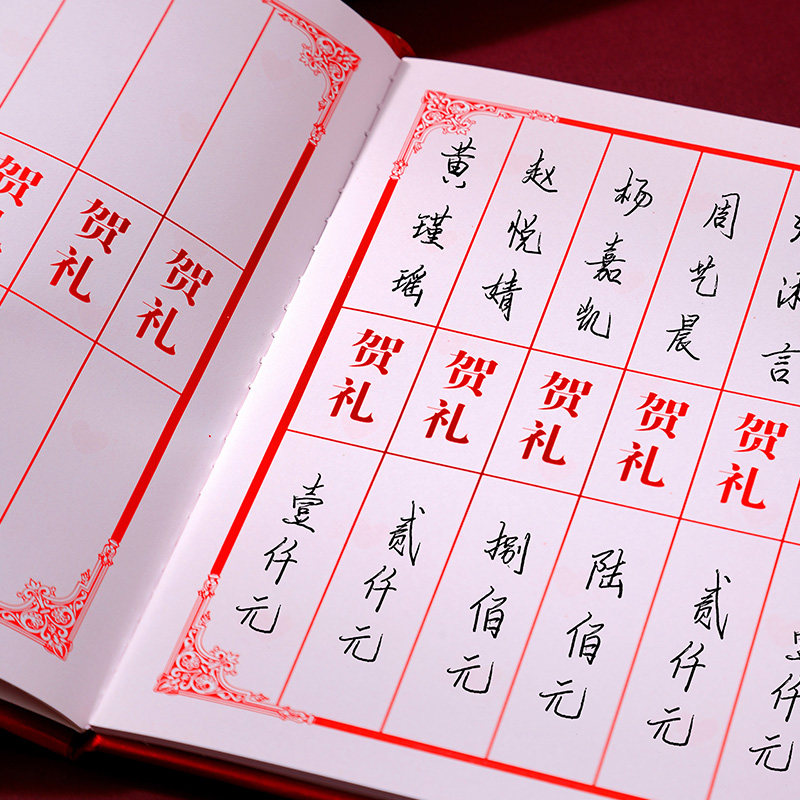 贺礼
贺礼
贺礼
黄瑾瑶
贺礼
壹仟元
赵悦婧
贺礼
贰仟元
杨嘉凯
贺礼
捌佰元
周艺晨
贺礼
陆佰元
言
贺礼
贰仟元
仟元